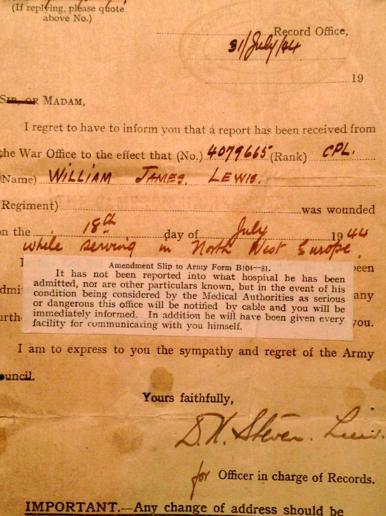 (If replying, please quote
above No.)
Record Office,
31/July/44
19
SIR, OR MADAM,
I regret to have to inform you that a report has been received from
the War Office to the effect that (No.) 4079665 (Rank) CPL.
Name) WILLIAM JAMES. LEWIS.
Regiment) was wounded
on the 18th day of July 1944
while serving in North West Europe.
I been
Amendment Slip to Army Form B104—81.
It has not been reported into what hospital he has been
admitted, nor are other particulars known, but in the event of his
condition being considered by the Medical Authorities as serious
or dangerous this office will be notified by cable and you will be
immediately informed. In addition he will have been given every
facility for communicating with you himself.
admi any
urthe you.
I am to express to you the sympathy and regret of the Army
ouncil.
Yours faithfully,
for Officer in charge of Records.
IMPORTANT.—Any change of address should be